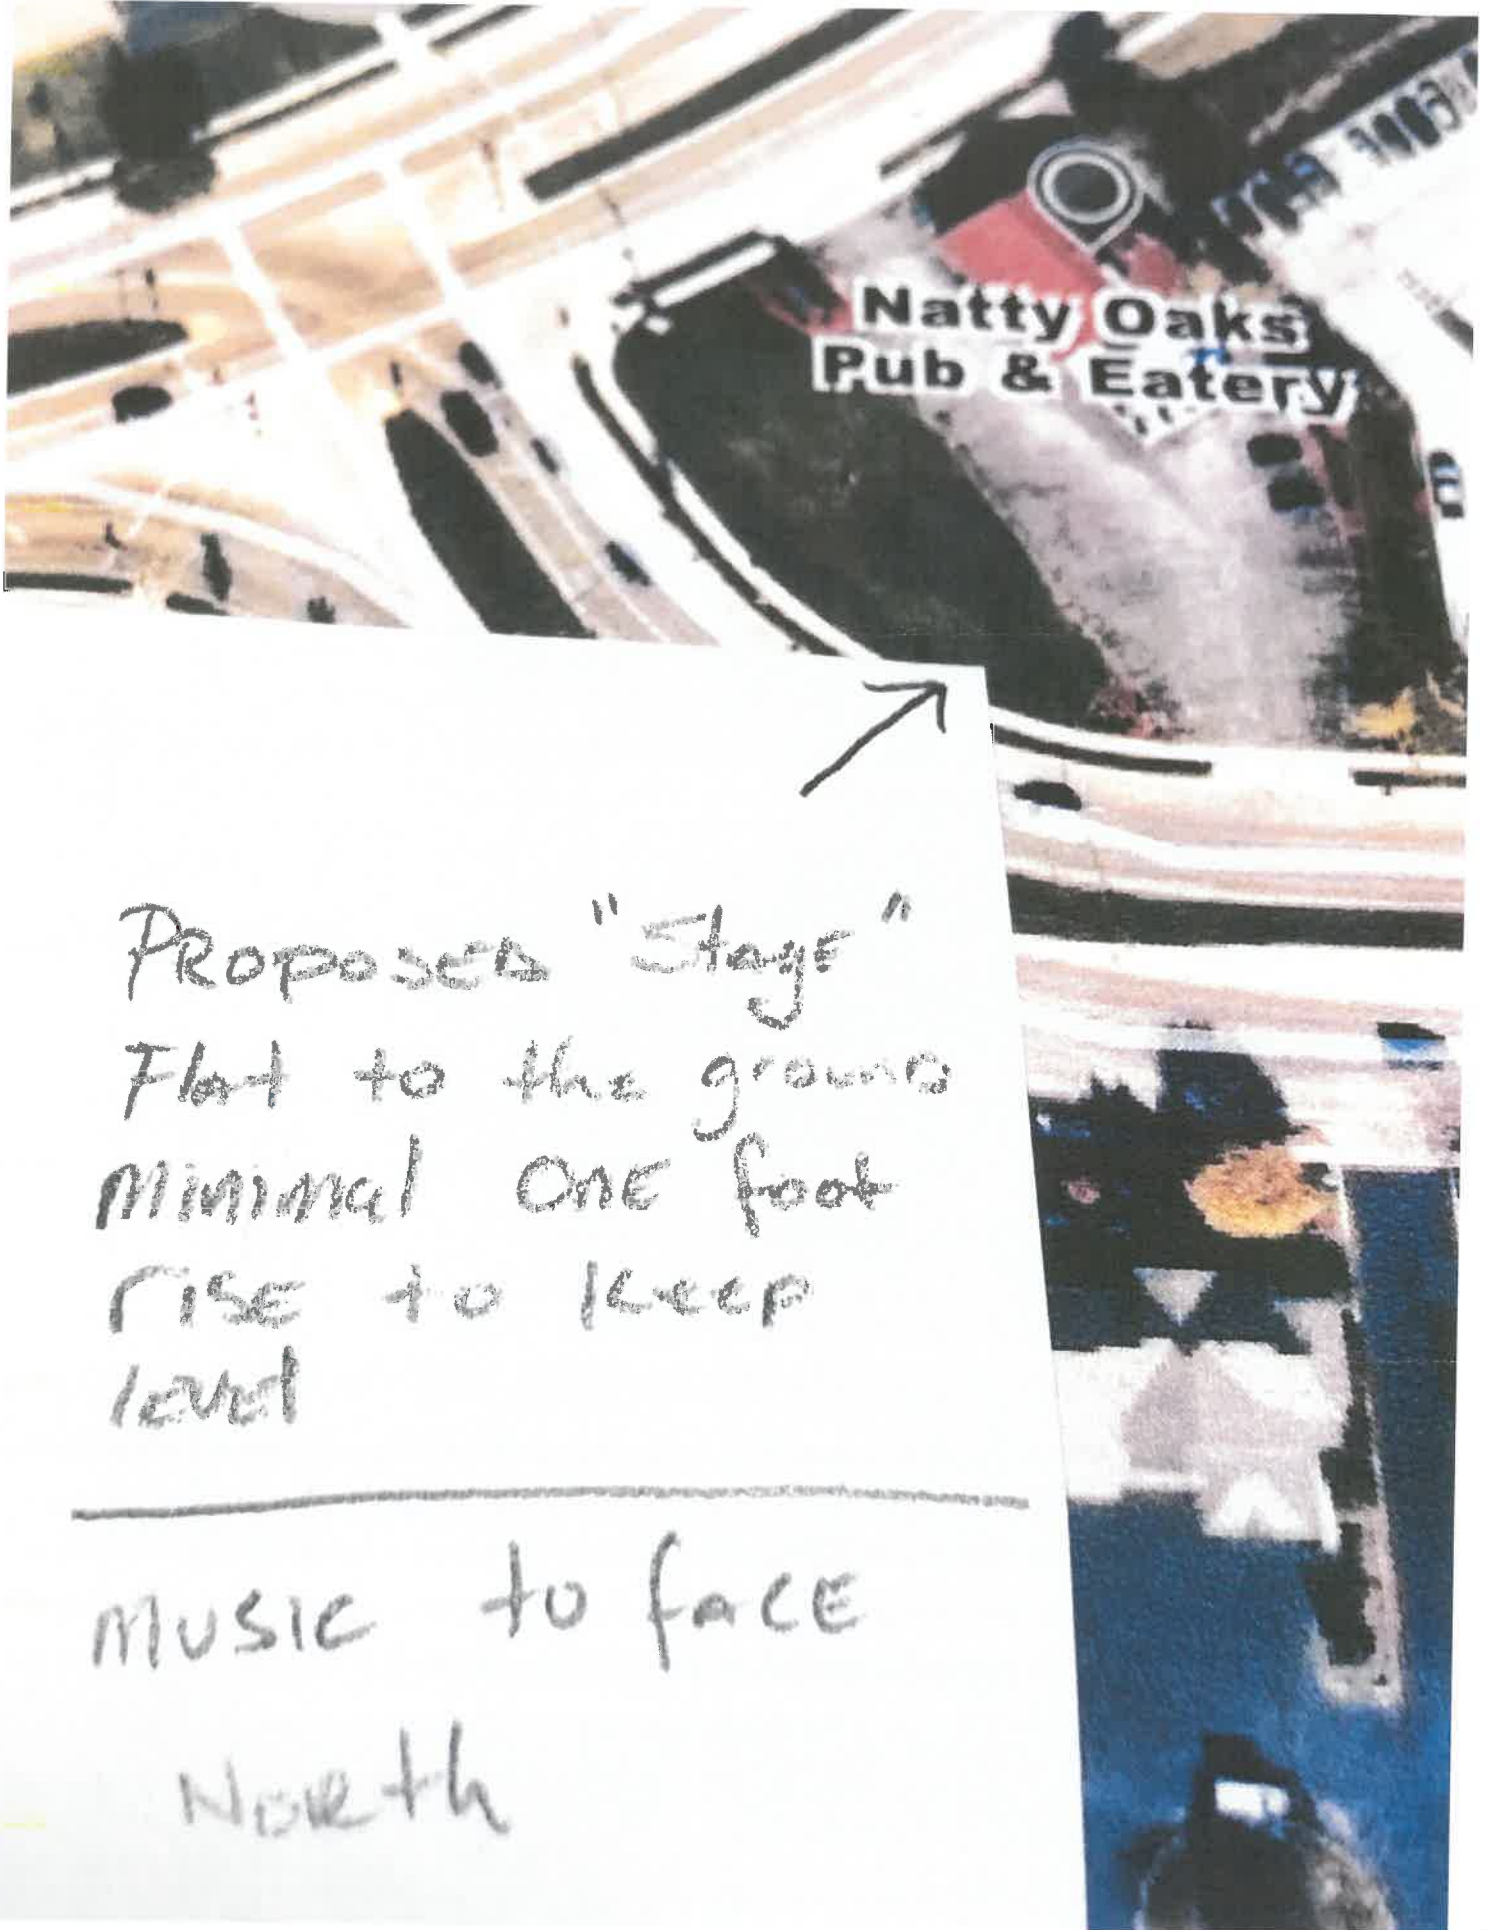 Natty Oaks
Pub & Eatery
PROPOSED "Stage"
Flat to the ground
MINIMAL ONE foot
rise to keep
level
MUSIC to fACE
North